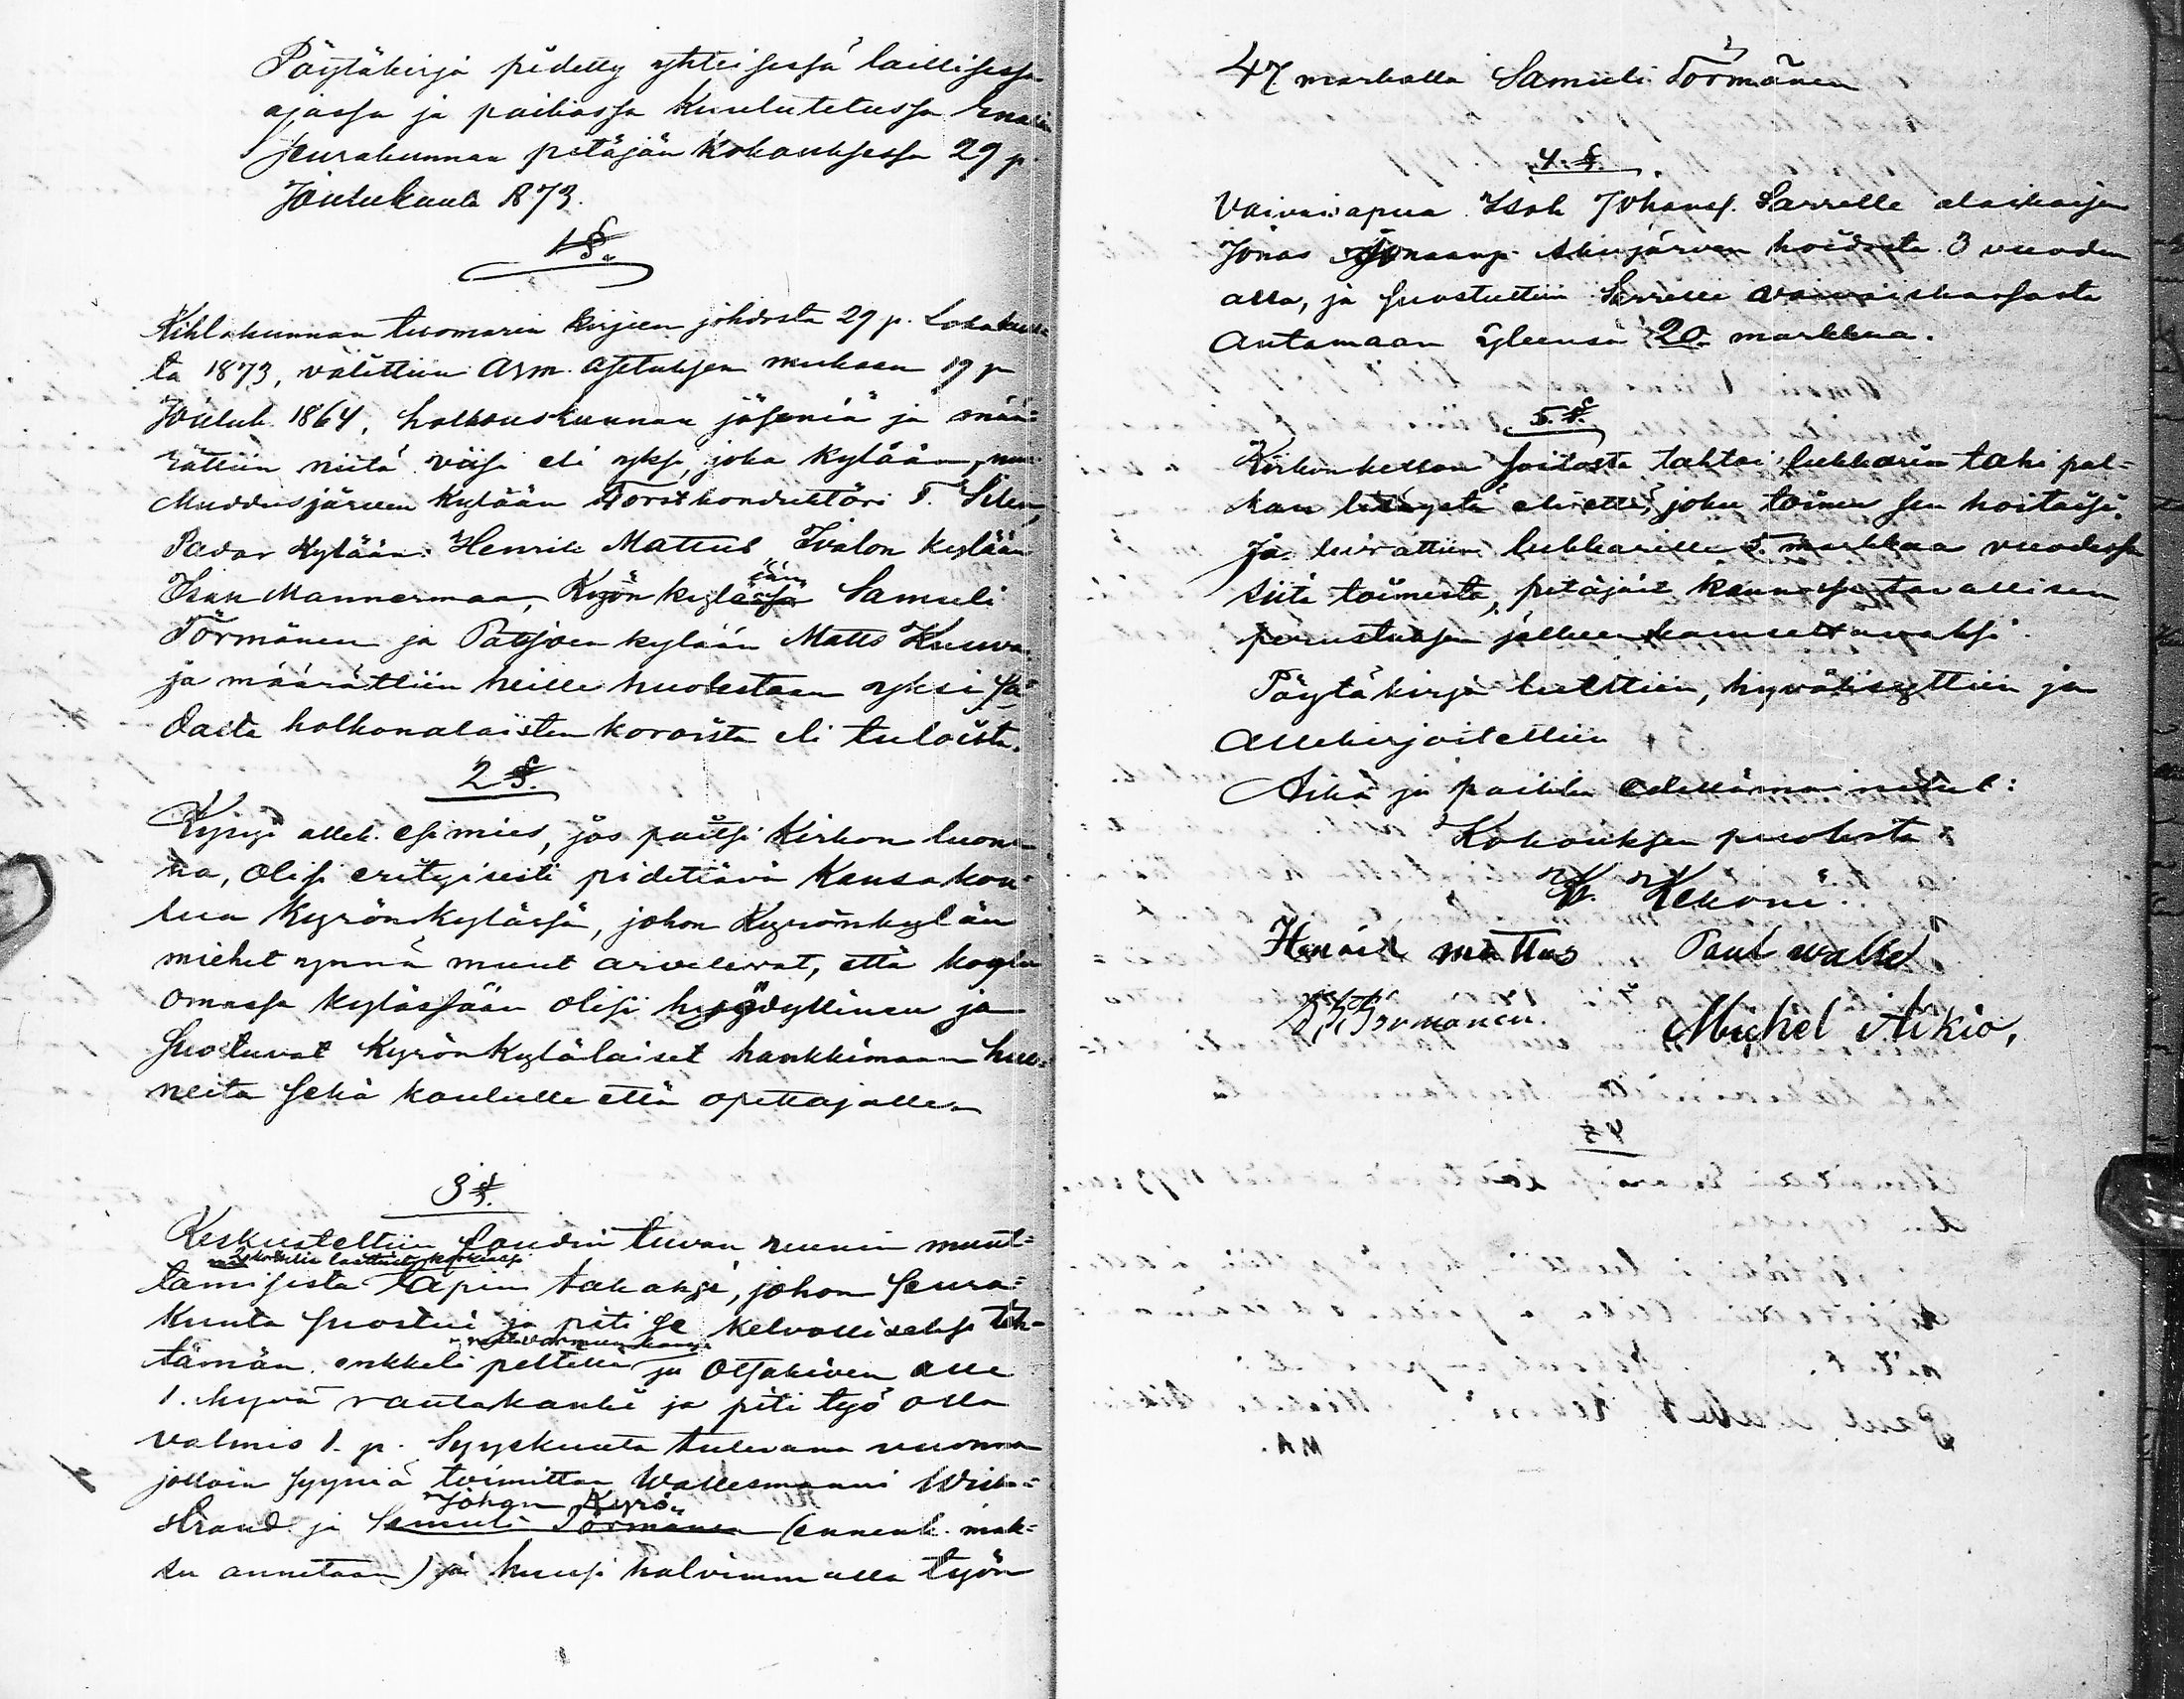 Pöytäkirja pidetty yhteisessä laillisessa
ajassa ja paikassa kuulutetussa Enarin
seurakunnan pitäjän kokouksessa 29 p.
Joulukuuta 1873.
1 §.
Kihlakunnan tuomarin kirjeen johdosta 29 p. Lokakuu-
ta 1873, valittiin Arm. Asetuksen mukaan 19 p
Jouluk. 1864, holhouskunnan jäseniä ja mää-
rättiin niitä viisi eli yksi joka kylään,
Muddusjärven kylään Forstkonduktöri T. Silen,
Padar kylään Henrik Mattus, Ivalon kylään
Isak Mannermaa, Kyrön kylässä ään Samuli
Törmänen ja Patsjoen kylään Matts Kuuva
ja määrättiin heille huolestaan yksi sa-
dasta holhonalaisten koroista eli tuloista.
2 §.
Kysyi allek. esimies, jos paitsi Kirkon luon-
na, olisi erityisesti pidettävä Kansakou-
lua Kyrönkylässä, johon Kyrönkylän
miehet ynnä muut arvelevat, että koulu
omassa kylässään olisi hyödyllinen ja
suostuvat Kyrönkyläläiset hankkimaan huo-
neita sekä koululle että opettajalle.
3 §.
Keskusteltiin Saudin tuvan muunin muut-
tamisesta Tapun takaksi, johon Seura-
kunta suostui ja piti se kelvolliseksi teh-
tämän enkkeli peltillä ja Otsakiven alle
1. hyvä rautakanki ja piti työ olla
valmis 1. p. Syyskuuta tulevana vuonna
jolloin syyniä toimittaa Wallesmanni Wik-
Johan Kyrö
strand ja Samuli Törmänen (ennenk. mak-
su annetaan) ja huusi halvimmalla työn
47 markalla Samuli Törmänen
4. §.
Vaivaisapua Isak Johans. Sarrelle alaikäisen
Jonas Akujärven hoidosta 3 vuoden
alla, ja suostuttiin Sarrelle vaivaiskassasta
Antamaan yleensä 20 markkaa.
5. §.
Kirkonkellon soitosta tahtoi lukkarin tahi pal-
kan lisäystä eli että joku toinen sen hoitaisi.
Ja luvattiin lukkarille 5. markkaa vuodessa
siitä toimesta, pitäjäs kunnasta tavallisen
perustuksen jälkeen kannettavaksi.
Pöytäkirja luettiin, hyväksyttiin ja
Allekirjoitettiin
Aika ja paikka edellämainitut:
Kokouksen puolesta
K. Kekoni.
Henrik mattus Paul walle
S. Törmänen. Michel Aikio,